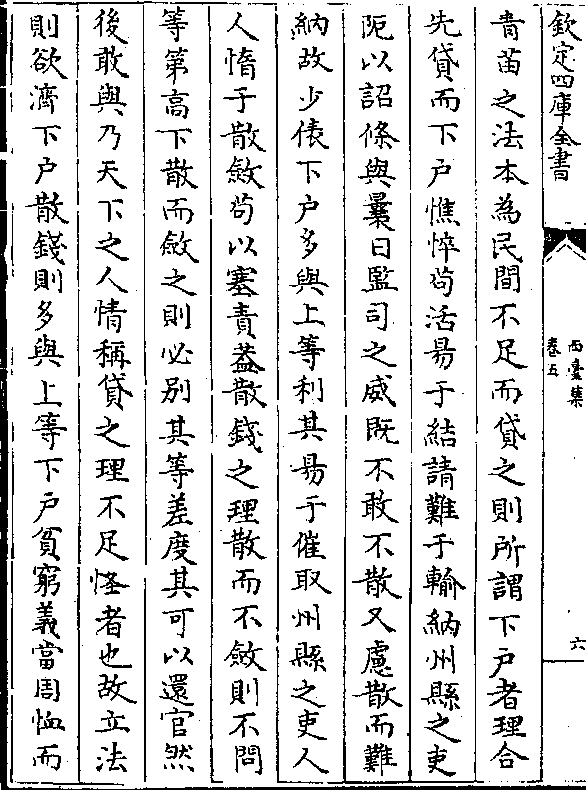 欽定四庫全書
西臺集
卷五
六
青苗之法本為民間不足而貸之則所謂下户者理合
先貸而下户憔悴茍活易于結請難于輸納州縣之吏
阨以詔條與曩日監司之威既不敢不散又慮散而難
納故少俵下户多與上等利其易于催取州縣之吏人
人惰于散斂茍以塞責蓋散錢之理散而不斂則不問
等第高下散而斂之則必别其等差度其可以還官然
後敢與乃天下之人情稱貸之理不足怪者也故立法
則欲濟下户散錢則多與上等下户貧窮義當周恤而